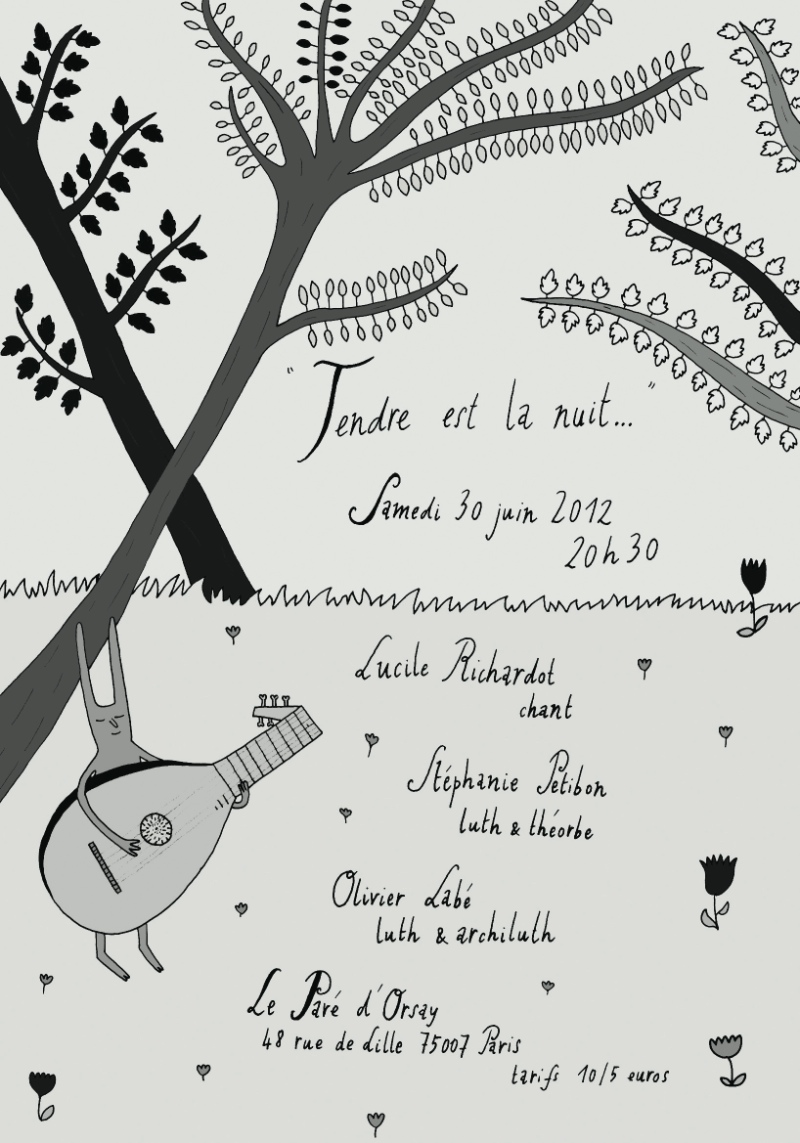 "Tendre est la nuit..."
Samedi 30 juin 2012
20h30
Lucile Richardot
chant
Stéphanie Petibon
luth & théorbe
Olivier Labé
luth & archiluth
Le Paré d'Orsay
48 rue de Lille 75007 Paris
tarifs 10/5 euros